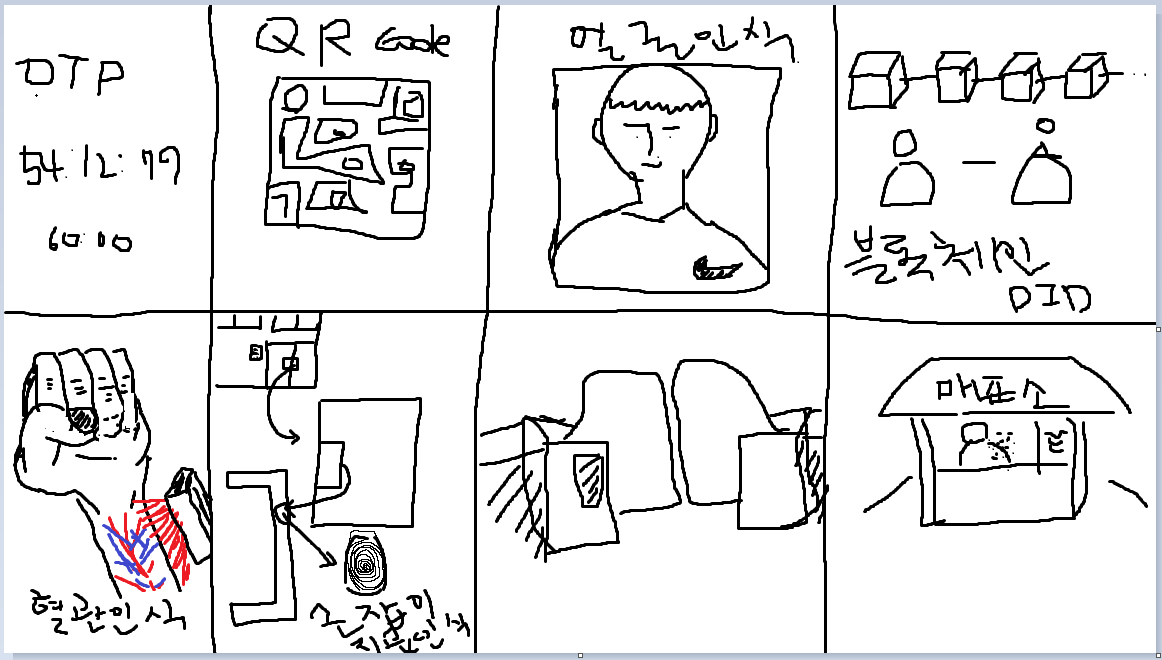 OTP
54:12:79
60:00
QR Code
얼굴인식
블록체인
DID
혈관인식
손잡이
지문인식
매표소